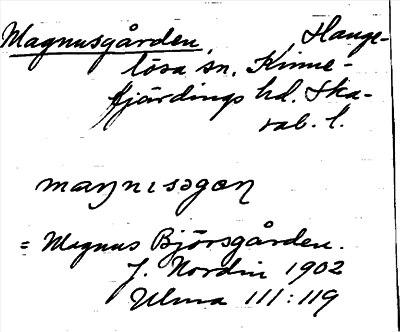 Magnusgården, Hange-
lösa sn. Kinne-
fjärdings hd. Ska-
rab. l.
maŋnısəgaɳ
= Magnus Björsgården.
J. Nordin 1902
Ulma 111:119